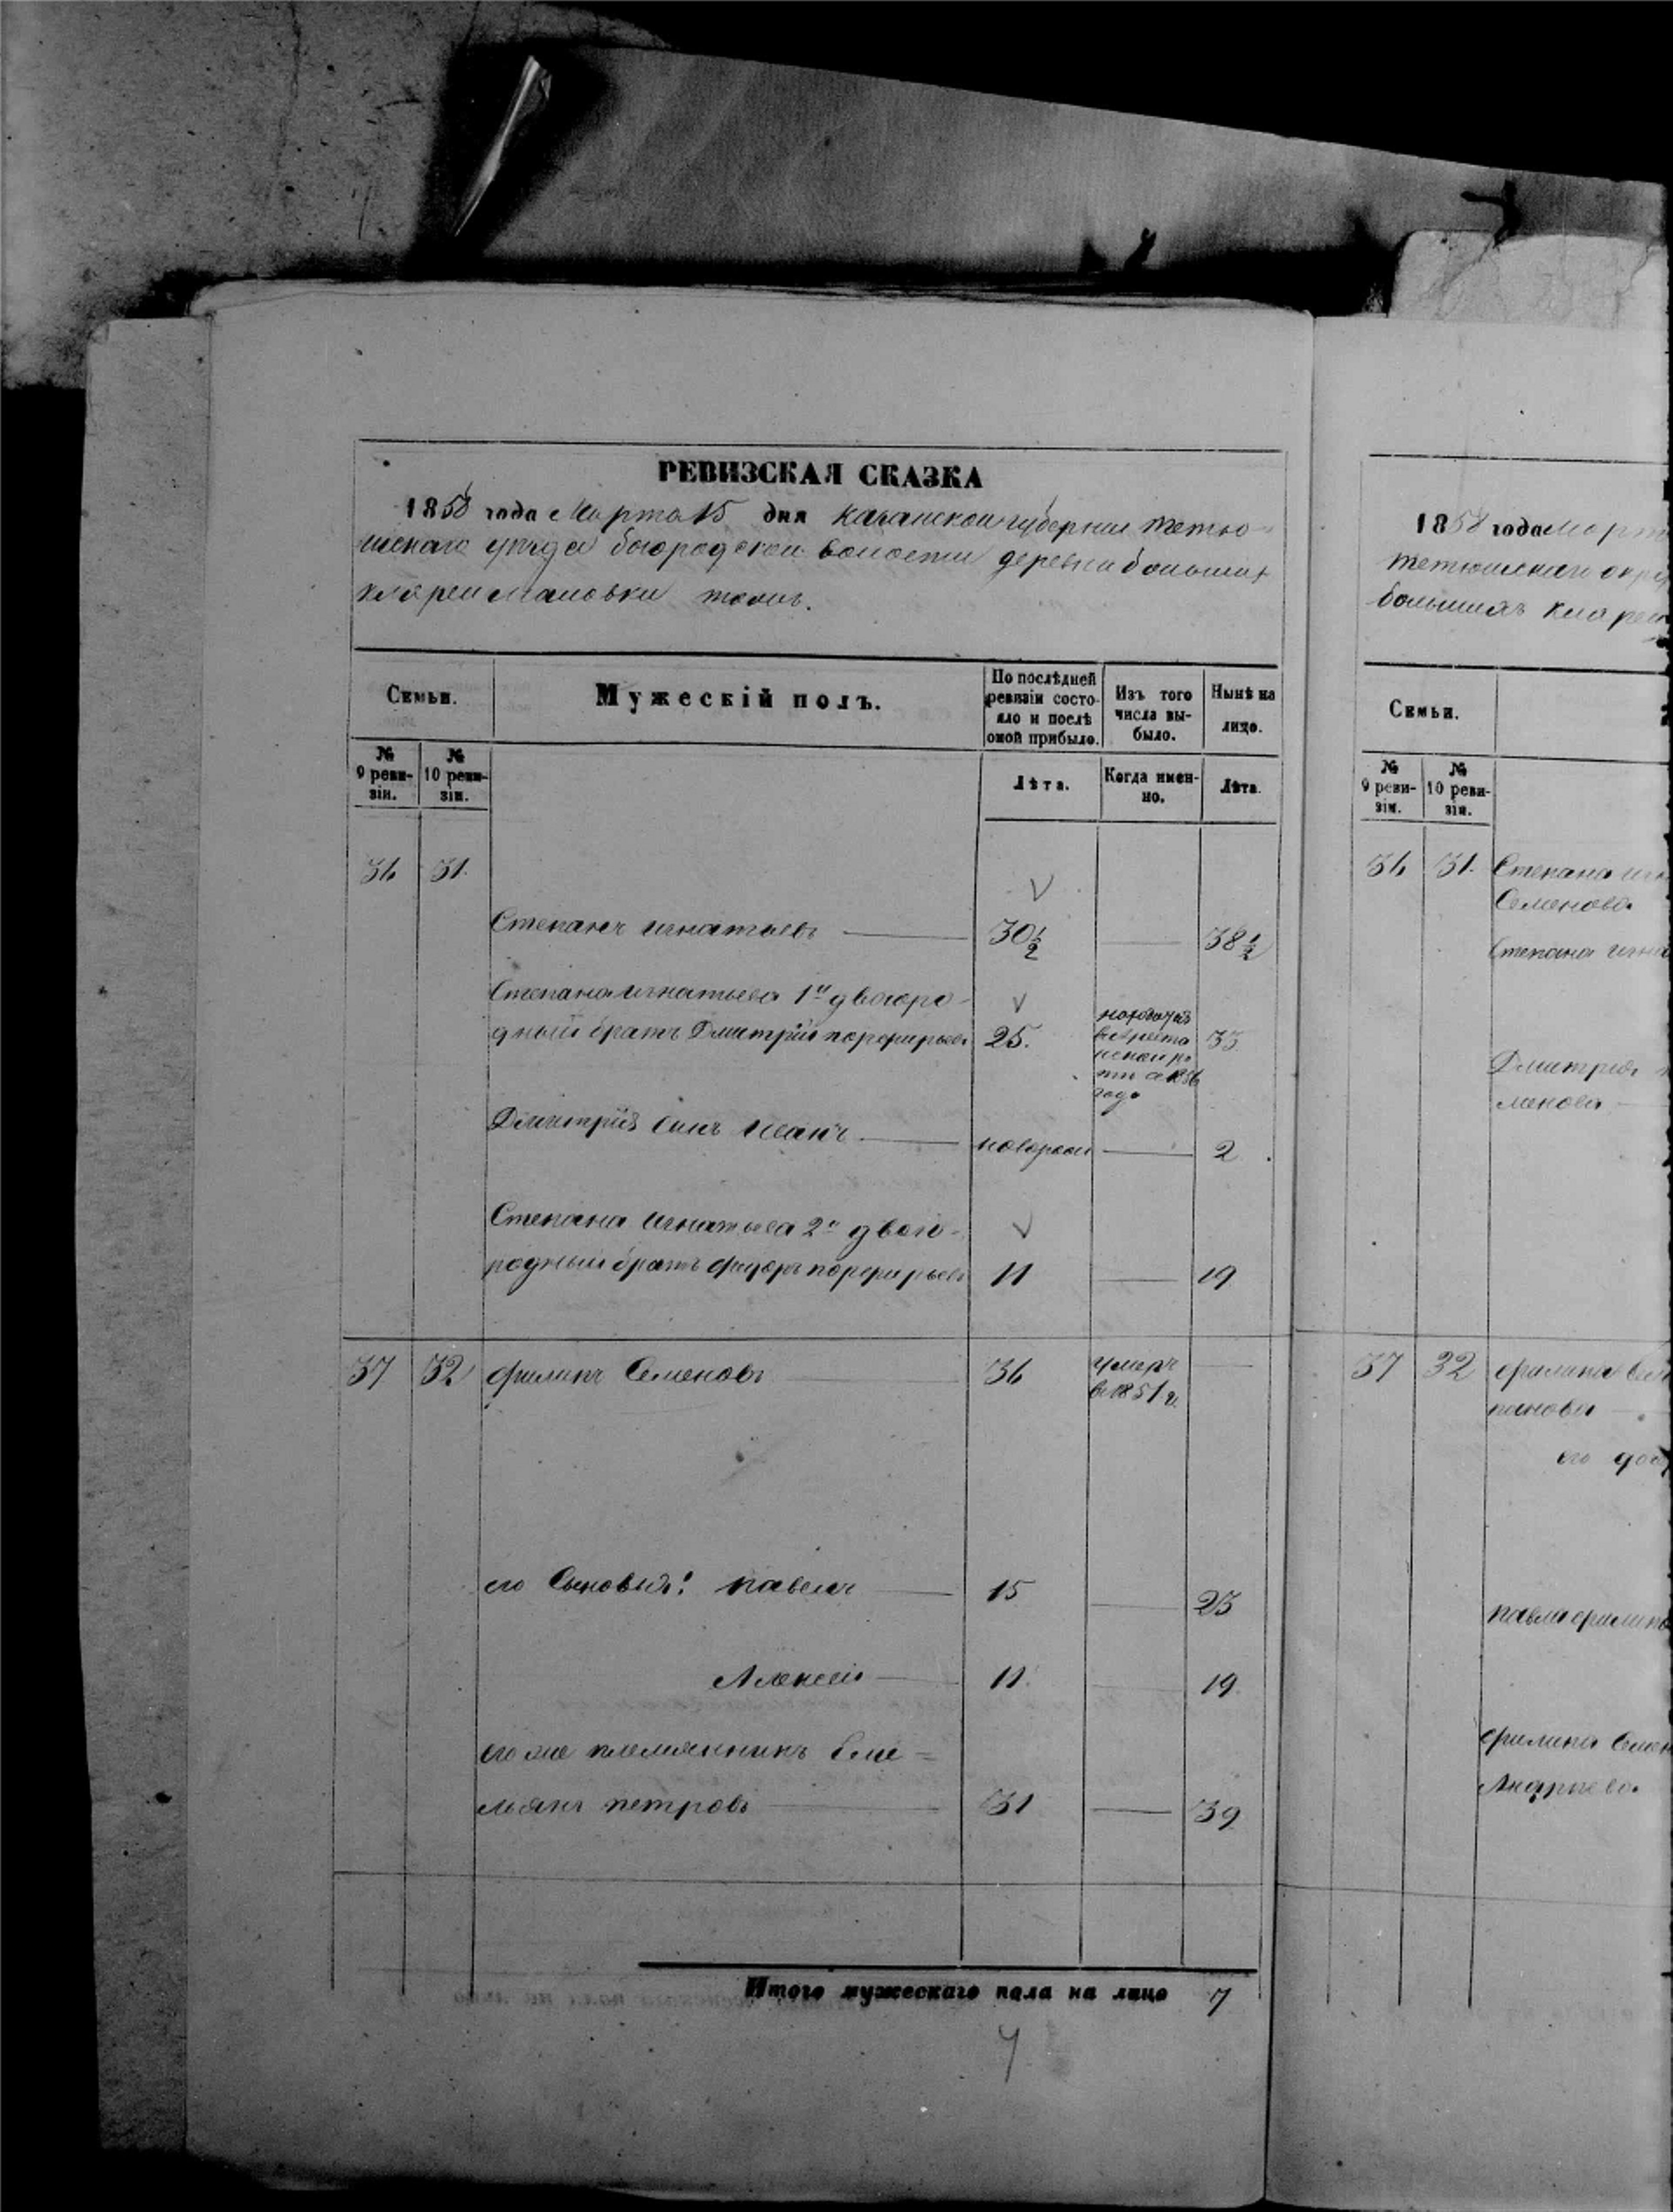 РЕВИЗСКАЯ СКАЗКА
1858 года Марта 15 дня казанской губернии тетю-
шскаго уезда богородской волости деревни больших
Семьи.
Мужескій полъ.
По послѣдней ревизіи состояло и послѣ оной прибыло.
Изъ того числа выбыло.
Нынѣ на лицо.
№ 9 ревизіи.
№ 10 ревизіи.
Лѣта.
Когда именно.
Лѣта.
36 31.
Степанъ игнатьевъ 30½ 38½
Степана игнатьева 1й двоюро-
дный братъ Дмитрій порфирьевъ 25. 33
1856
года
сынъ иванъ новорож 2
Степана игнатьева 2й двою-
родный братъ фидоръ порфирьевъ 11 19
37 32 филипъ Семеновъ 36 умеръ
в 1851 г.
его Сыновья: павелъ 15 23
Алексей 11. 19.
его же племянникъ Еме=
льянъ петровъ 31 39
Итого мужескаго пола на лицо 7
7
1858 года Март
тетюшскаго окр
большихъ
Семьи.
№ 9 ревизіи.
№ 10 ревизіи.
36 31. Степана игн
Семенова
Степана игна
Дмитрия
менова
37 32 филипа Сем
панова
его доч
павла филипо
филипа Семен
Андреева